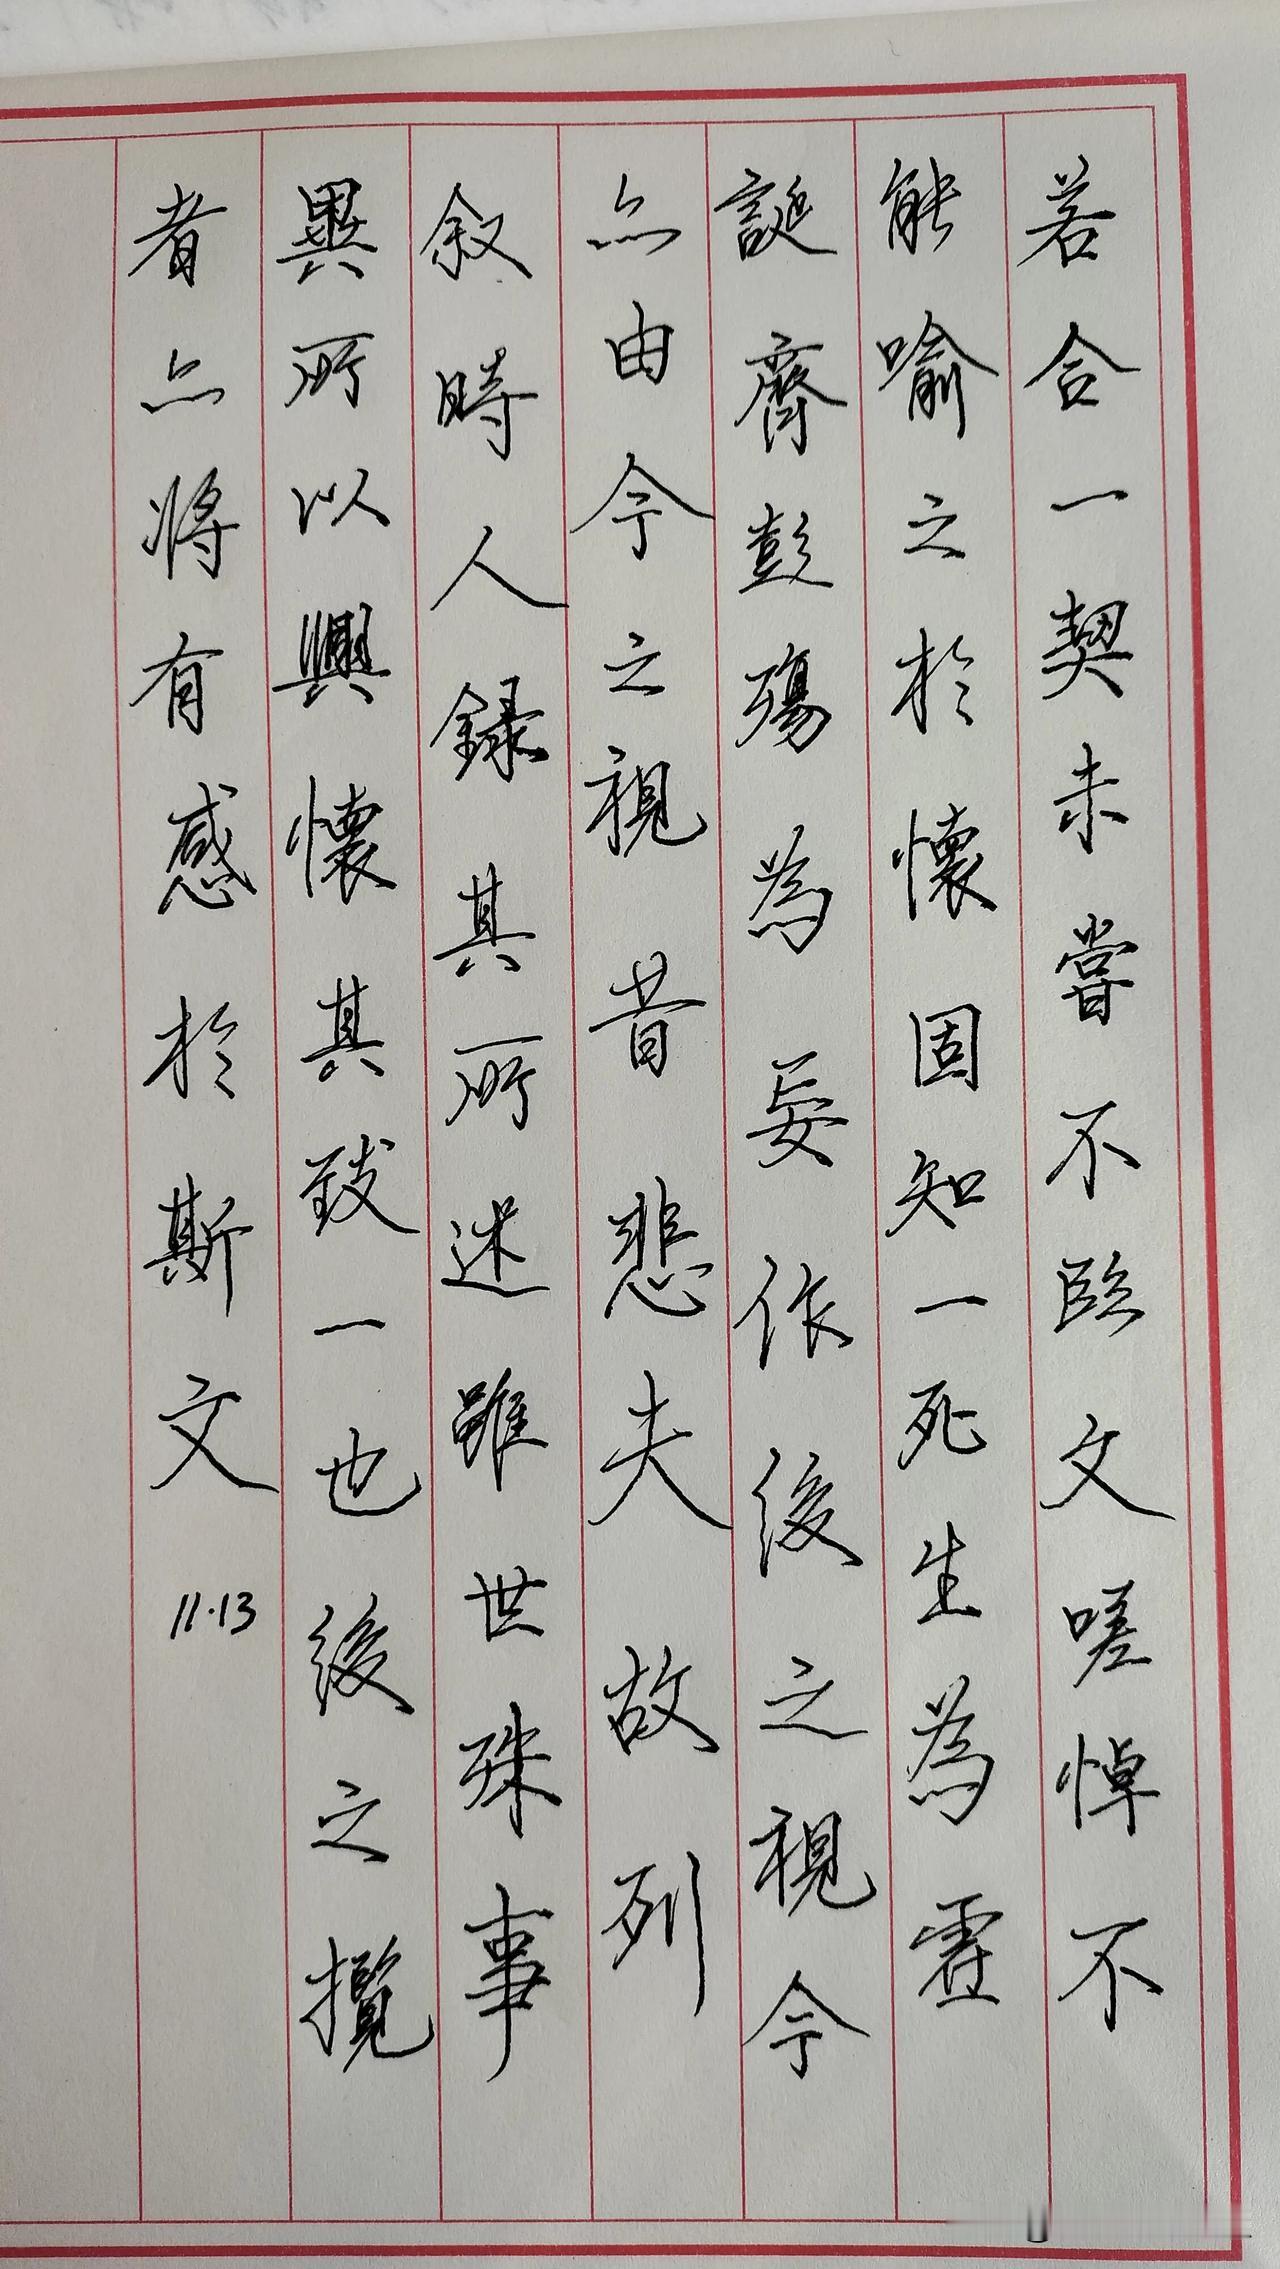 若合一契未嘗不臨文嗟悼不
能喻之於懷固知一死生為虛
誕齊彭殤為妄作後之視今
亦由今之視昔悲夫故列
敘時人錄其所述雖世殊事
異所以興懷其致一也後之攬
者亦將有感於斯文
11.13